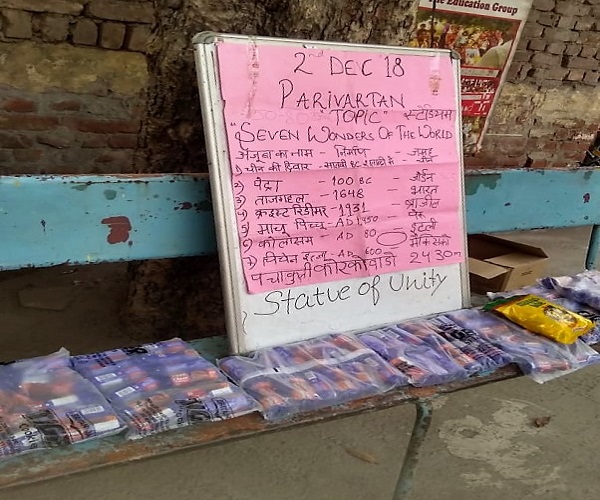 The Education Group
2nd DEC '18
PARIVARTAN
"TOPIC" स्टेडियम
"SEVEN WONDERS OF THE WORLD
अजूबा का नाम - निर्माण - जगह
1) चीन की दीवार - सातवीं BC शताब्दी में - चीन
2) पेट्रा - 100 BC - जॉर्डन
3) ताजमहल - 1648 - भारत
4) क्राइस्ट रिडीमर - 1931 - ब्राजील
5) माचू पिच्चू - AD 1450 - पेरू
6) कोलोसम - AD 80 इटली
7) चिचेन इत्जा - AD 600 मैक्सिको
2430m
Statue of Unity